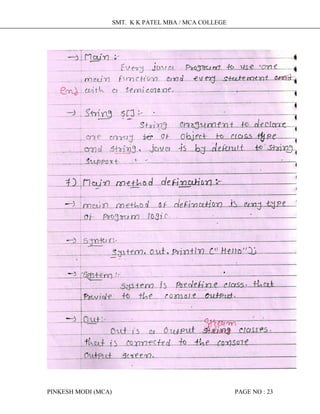 SMT. K K PATEL MBA / MCA COLLEGE
→ Main :-
Every java Program to use one
main function and every statement
end with a semicolone.
→ String s[] :-
String arragument to declare
one array of object to class type
and string. Java is by default to string
support.
7) Main method defination :-
→ main method of defination is any type
of program logic.
→ Syntax:-
System.out.println ("Hello");
→ System :-
System is Predefine class. that
Provide to the console output.
→ Out :-
Out is a Output Stream classes.
that is connected to the console
Output screen.
PINKESH MODI (MCA) PAGE NO : 23